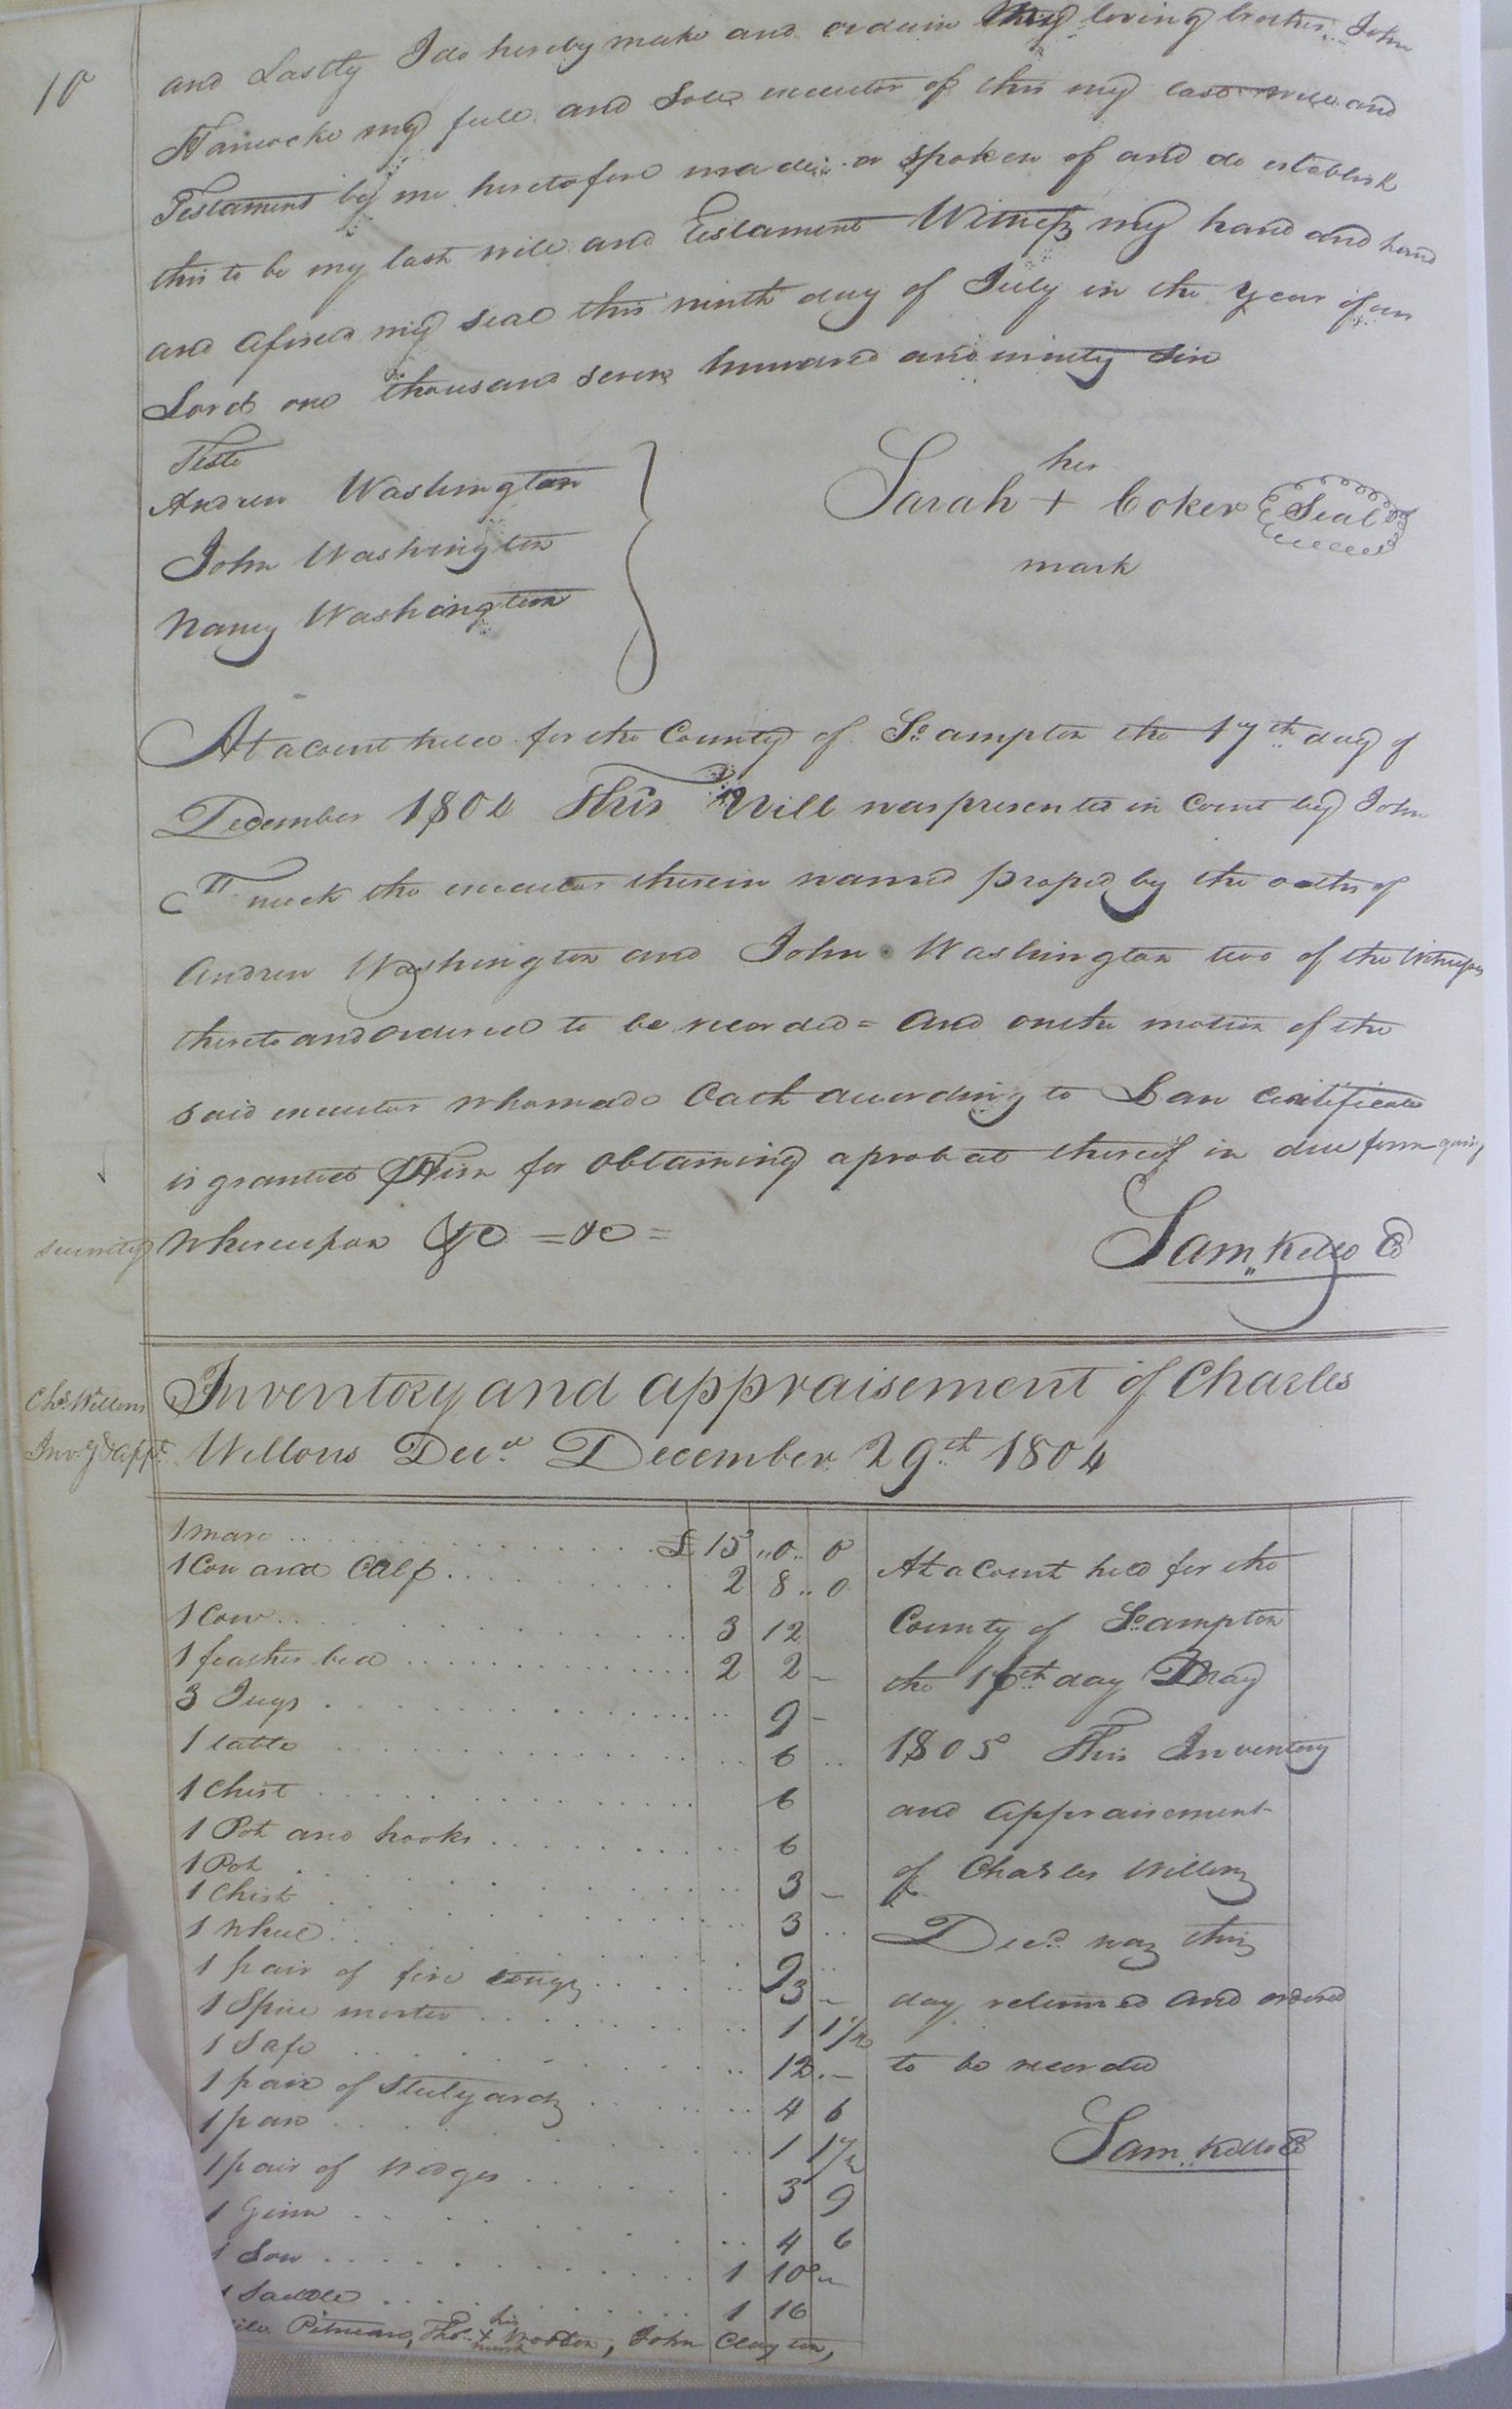 10
and Lastly I do hereby make and ordain my loving brother John
my full and Sole executor of this my last will and
Testament by me heretofore made or spoken of and do establish
this to be my last will and Testament Witness my hand and hand
and afixed my seal this ninth day of July in the year of our
Lord one thousand seven hundred and ninety Six
Teste
Andrew Washington
John Washington
Nancy Washington
her
Sarah + Coker Seal
mark
At a Court held for the County of So.ampton the 17th day of
December 1804 This Will was presented in Court by John
the executor therein named proped by the oaths of
Andrew Washington and John Washington two of the Witnesses
thereto and ordered to be recorded = And on the motion of the
said executor who made Oath according to Law Certificate
is granted Him for Obtaining a probat thereof in due form giving
security Whereupon &c = &c =
Sam,, Kello Cc
Chs. Willons
Inv.y & App.t
Inventory and appraisement of Charles
Willons Dec.d December 29th 1804
1 mare £ 15 ,, 0 .. 0
1 Cow and Calf 2 8 .. 0
1 Cow 3 12
1 feather bed 2 2 -
3 Jugs 9 -
1 table 6 ..
1 Chist 6
1 Pot and hooks 6
1 Pot 3 -
1 Chist 3 ..
1 Wheel 9 ..
1 pair of fire tongs 3 -
1 Spice morter 1 1 1/2
1 Safe 12 . -
1 pair of Stilyards 4 6
1 pan 1 1 1/2
1 pair of Wedges 3 9
1 Ginn 4 6
1 Sow 1 10 -
1 Saddle 1 16
Pitman, Tho.s his + mark Wootten, John Clayton,
At a Court held for the
County of So.ampton
the day May
1805 This Inventory
and Appraisement
of Charles Willons
Dec.d was this
day returned and ordered
to be recorded
Sam.. Kello Cc